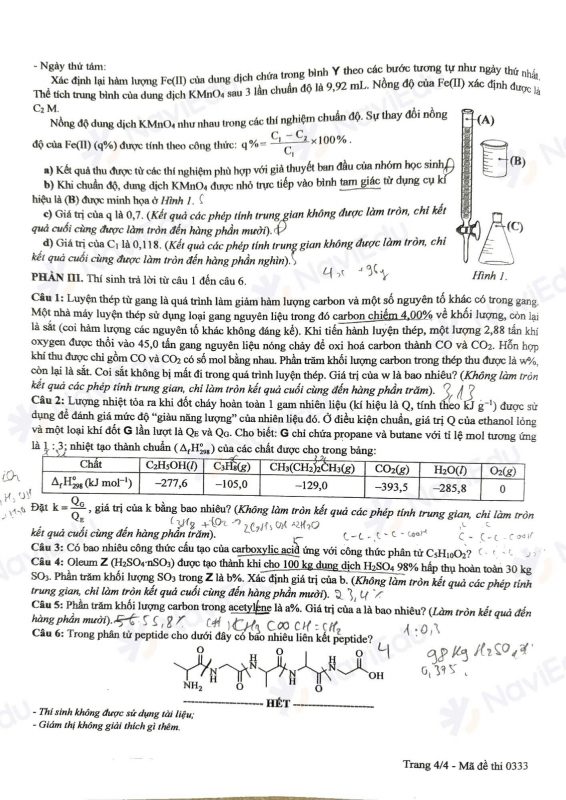 - Ngày thứ tám:
Xác định lại hàm lượng Fe(II) của dung dịch chứa trong bình Y theo các bước tương tự như ngày thứ nhất.
Thể tích trung bình của dung dịch KMnO₄ sau 3 lần chuẩn độ là 9,92 mL. Nồng độ của Fe(II) xác định được là
C₂ M.
Nồng độ dung dịch KMnO₄ như nhau trong các thí nghiệm chuẩn độ. Sự thay đổi nồng
độ của Fe(II) (q%) được tính theo công thức: q% = (C₁ − C₂)/C₁ × 100%.
a) Kết quả thu được từ các thí nghiệm phù hợp với giả thuyết ban đầu của nhóm học sinh.
b) Khi chuẩn độ, dung dịch KMnO₄ được nhỏ trực tiếp vào bình tam giác từ dụng cụ kí
hiệu là (B) được minh họa ở Hình 1. S
c) Giá trị của q là 0,7. (Kết quả các phép tính trung gian không được làm tròn, chỉ kết
quả cuối cùng được làm tròn đến hàng phần mười).
d) Giá trị của C₁ là 0,118. (Kết quả các phép tính trung gian không được làm tròn, chỉ
kết quả cuối cùng được làm tròn đến hàng phần nghìn).
(A)
(B)
(C)
Hình 1.
PHẦN III. Thí sinh trả lời từ câu 1 đến câu 6.
Câu 1: Luyện thép từ gang là quá trình làm giảm hàm lượng carbon và một số nguyên tố khác có trong gang.
Một nhà máy luyện thép sử dụng loại gang nguyên liệu trong đó carbon chiếm 4,00% về khối lượng, còn lại
là sắt (coi hàm lượng các nguyên tố khác không đáng kể). Khi tiến hành luyện thép, một lượng 2,88 tấn khí
oxygen được thổi vào 45,0 tấn gang nguyên liệu nóng chảy để oxi hoá carbon thành CO và CO₂. Hỗn hợp
khí thu được chỉ gồm CO và CO₂ có số mol bằng nhau. Phần trăm khối lượng carbon trong thép thu được là w%,
còn lại là sắt. Coi sắt không bị mất đi trong quá trình luyện thép. Giá trị của w là bao nhiêu? (Không làm tròn
kết quả các phép tính trung gian, chỉ làm tròn kết quả cuối cùng đến hàng phần trăm). 3,13
Câu 2: Lượng nhiệt tỏa ra khi đốt cháy hoàn toàn 1 gam nhiên liệu (kí hiệu là Q, tính theo kJ g⁻¹) được sử
dụng để đánh giá mức độ “giàu năng lượng” của nhiên liệu đó. Ở điều kiện chuẩn, giá trị Q của ethanol lỏng
và một loại khí đốt G lần lượt là Q_E và Q_G. Cho biết: G chỉ chứa propane và butane với tỉ lệ mol tương ứng
là 1 : 3; nhiệt tạo thành chuẩn (Δ_fH°₂₉₈) của các chất được cho trong bảng:
Chất C₂H₅OH(l) C₃H₈(g) CH₃(CH₂)₂CH₃(g) CO₂(g) H₂O(l) O₂(g)
Δ_fH°₂₉₈ (kJ mol⁻¹) −277,6 −105,0 −129,0 −393,5 −285,8 0
Đặt k = Q_G/Q_E, giá trị của k bằng bao nhiêu? (Không làm tròn kết quả các phép tính trung gian, chỉ làm tròn
kết quả cuối cùng đến hàng phần trăm).
C-C-C-C-COOH
Câu 3: Có bao nhiêu công thức cấu tạo của carboxylic acid ứng với công thức phân tử C₅H₁₀O₂? 
Câu 4: Oleum Z (H₂SO₄·nSO₃) được tạo thành khi cho 100 kg dung dịch H₂SO₄ 98% hấp thụ hoàn toàn 30 kg
SO₃. Phần trăm khối lượng SO₃ trong Z là b%. Xác định giá trị của b. (Không làm tròn kết quả các phép tính
trung gian, chỉ làm tròn kết quả cuối cùng đến hàng phần mười). 23,4%
Câu 5: Phần trăm khối lượng carbon trong acetylene là a%. Giá trị của a là bao nhiêu? (Làm tròn kết quả đến
hàng phần mười). 55,8%
1:0,3
Câu 6: Trong phân tử peptide cho dưới đây có bao nhiêu liên kết peptide? 4
98 kg H₂SO₄
NH₂ O H N O H N O H N O H N O OH
HẾT
- Thí sinh không được sử dụng tài liệu;
- Giám thị không giải thích gì thêm.
Trang 4/4 - Mã đề thi 0333
NaviEdu